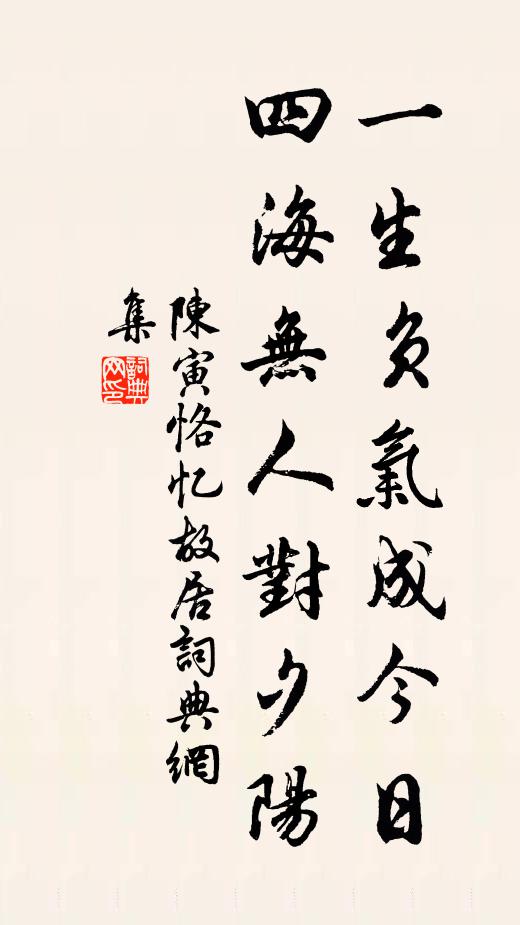 一生负氣成今日
四海無人對夕陽
陳寅恪忆故居詞典網
集
詞典网印